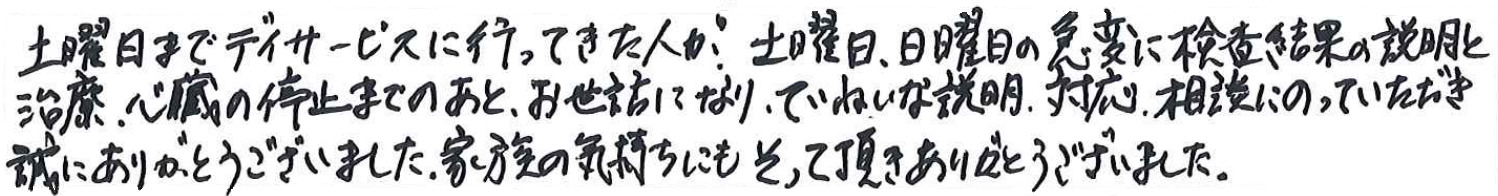 土曜日までデイサービスに行ってきた人が、土曜日、日曜日の急変に検査結果の説明と
治療、心臓の停止までのあと、お世話になり、ていねいな説明、対応、相談にのっていただき
誠にありがとうございました。家族の気持ちにもそって頂きありがとうございました。